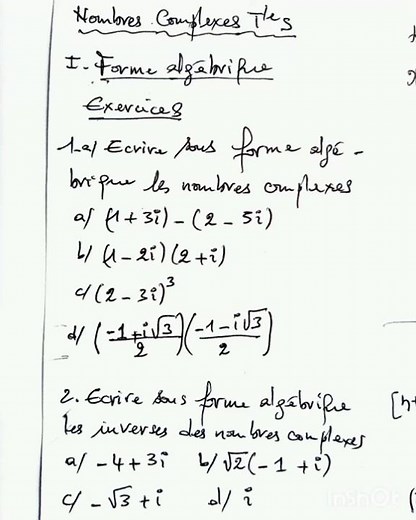 Nombres Complexes Tle S
I- Forme algébrique
Exercices
1.a/ Ecrire sous forme algé-
brique les nombres complexes
a/ (1 + 3i) - (2 - 5i)
b/ (1 - 2i)(2 + i)
c/ (2 - 3i)³
d/ ((-1+i√3)/2)((-1-i√3)/2)
2. Ecrire sous forme algébrique
les inverses des nombres complexes
a/ -4+3i b/ √2(-1+i)
c/ -√3+i d/ i
InShOt